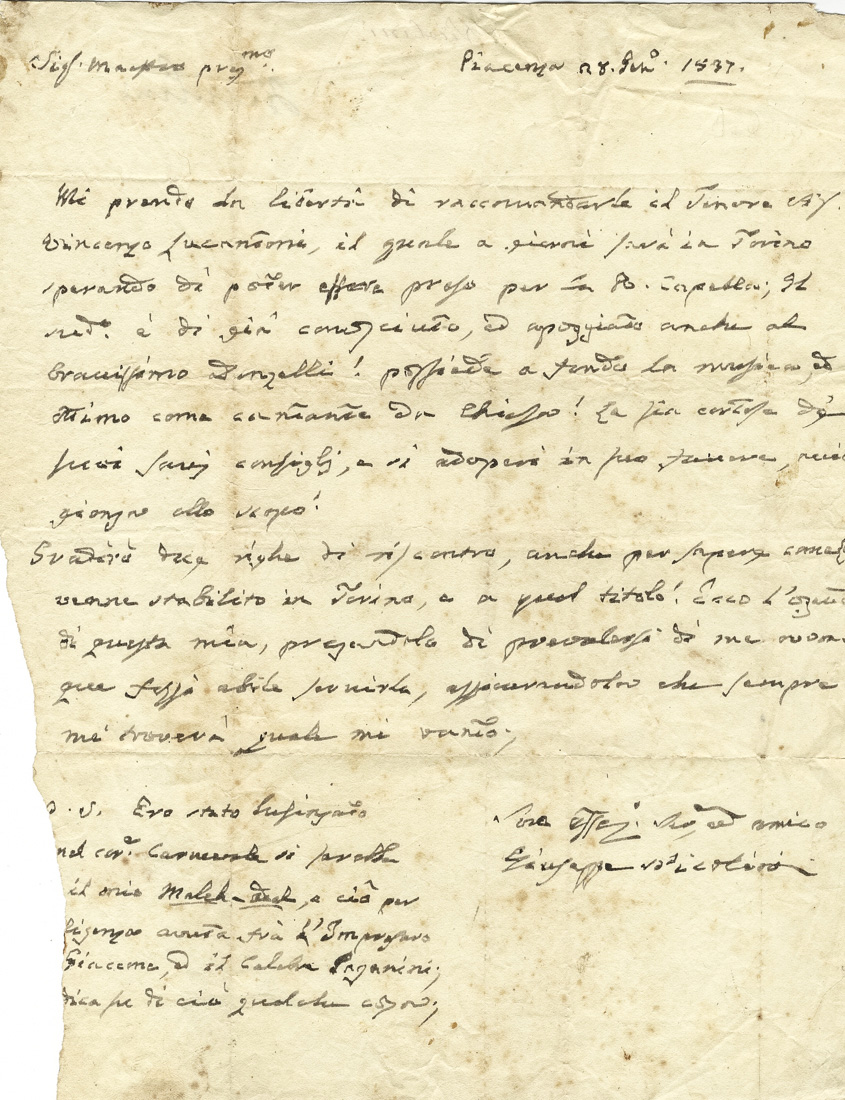 Sig. Maestro preg.mo
Piacenza 28. Gen.o 1837.
Mi prendo la libertà di raccomandarle il Tenore Sig.
Vincenzo Lucantoni, il quale a giorni sarà in Torino
sperando di poter essere preso per la R. Capella; Il
med.o è di già conosciuto, ed apoggiato anche al
bravissimo Donzelli! possiede a fondo la musica, ed
ottimo come cantante da Chiesa! Le sia cortese de
suoi savj consiglj, e si adoperi in suo favore,
giunga allo scopo!
Gradirò due righe di riscontro, anche per sapere come
venne stabilito in Torino, e a qual titolo! Ecco l'
di questa mia, pregandola di prevalersi di me
que fossi abile servirla, assicurandola che sempre
mi troverà quale mi vanto;
Suo Aff. Ser. ed amico
Giuseppe Nicolini
P. S. Ero stato lusingato
nel cor.e Carnevale si sarebbe
il mio Malek-Adel, e ciò per
ligenza avuta trà l'Impresaro
Giacomo, ed il Celebre Paganini;
dica se di ciò qualche cosa;